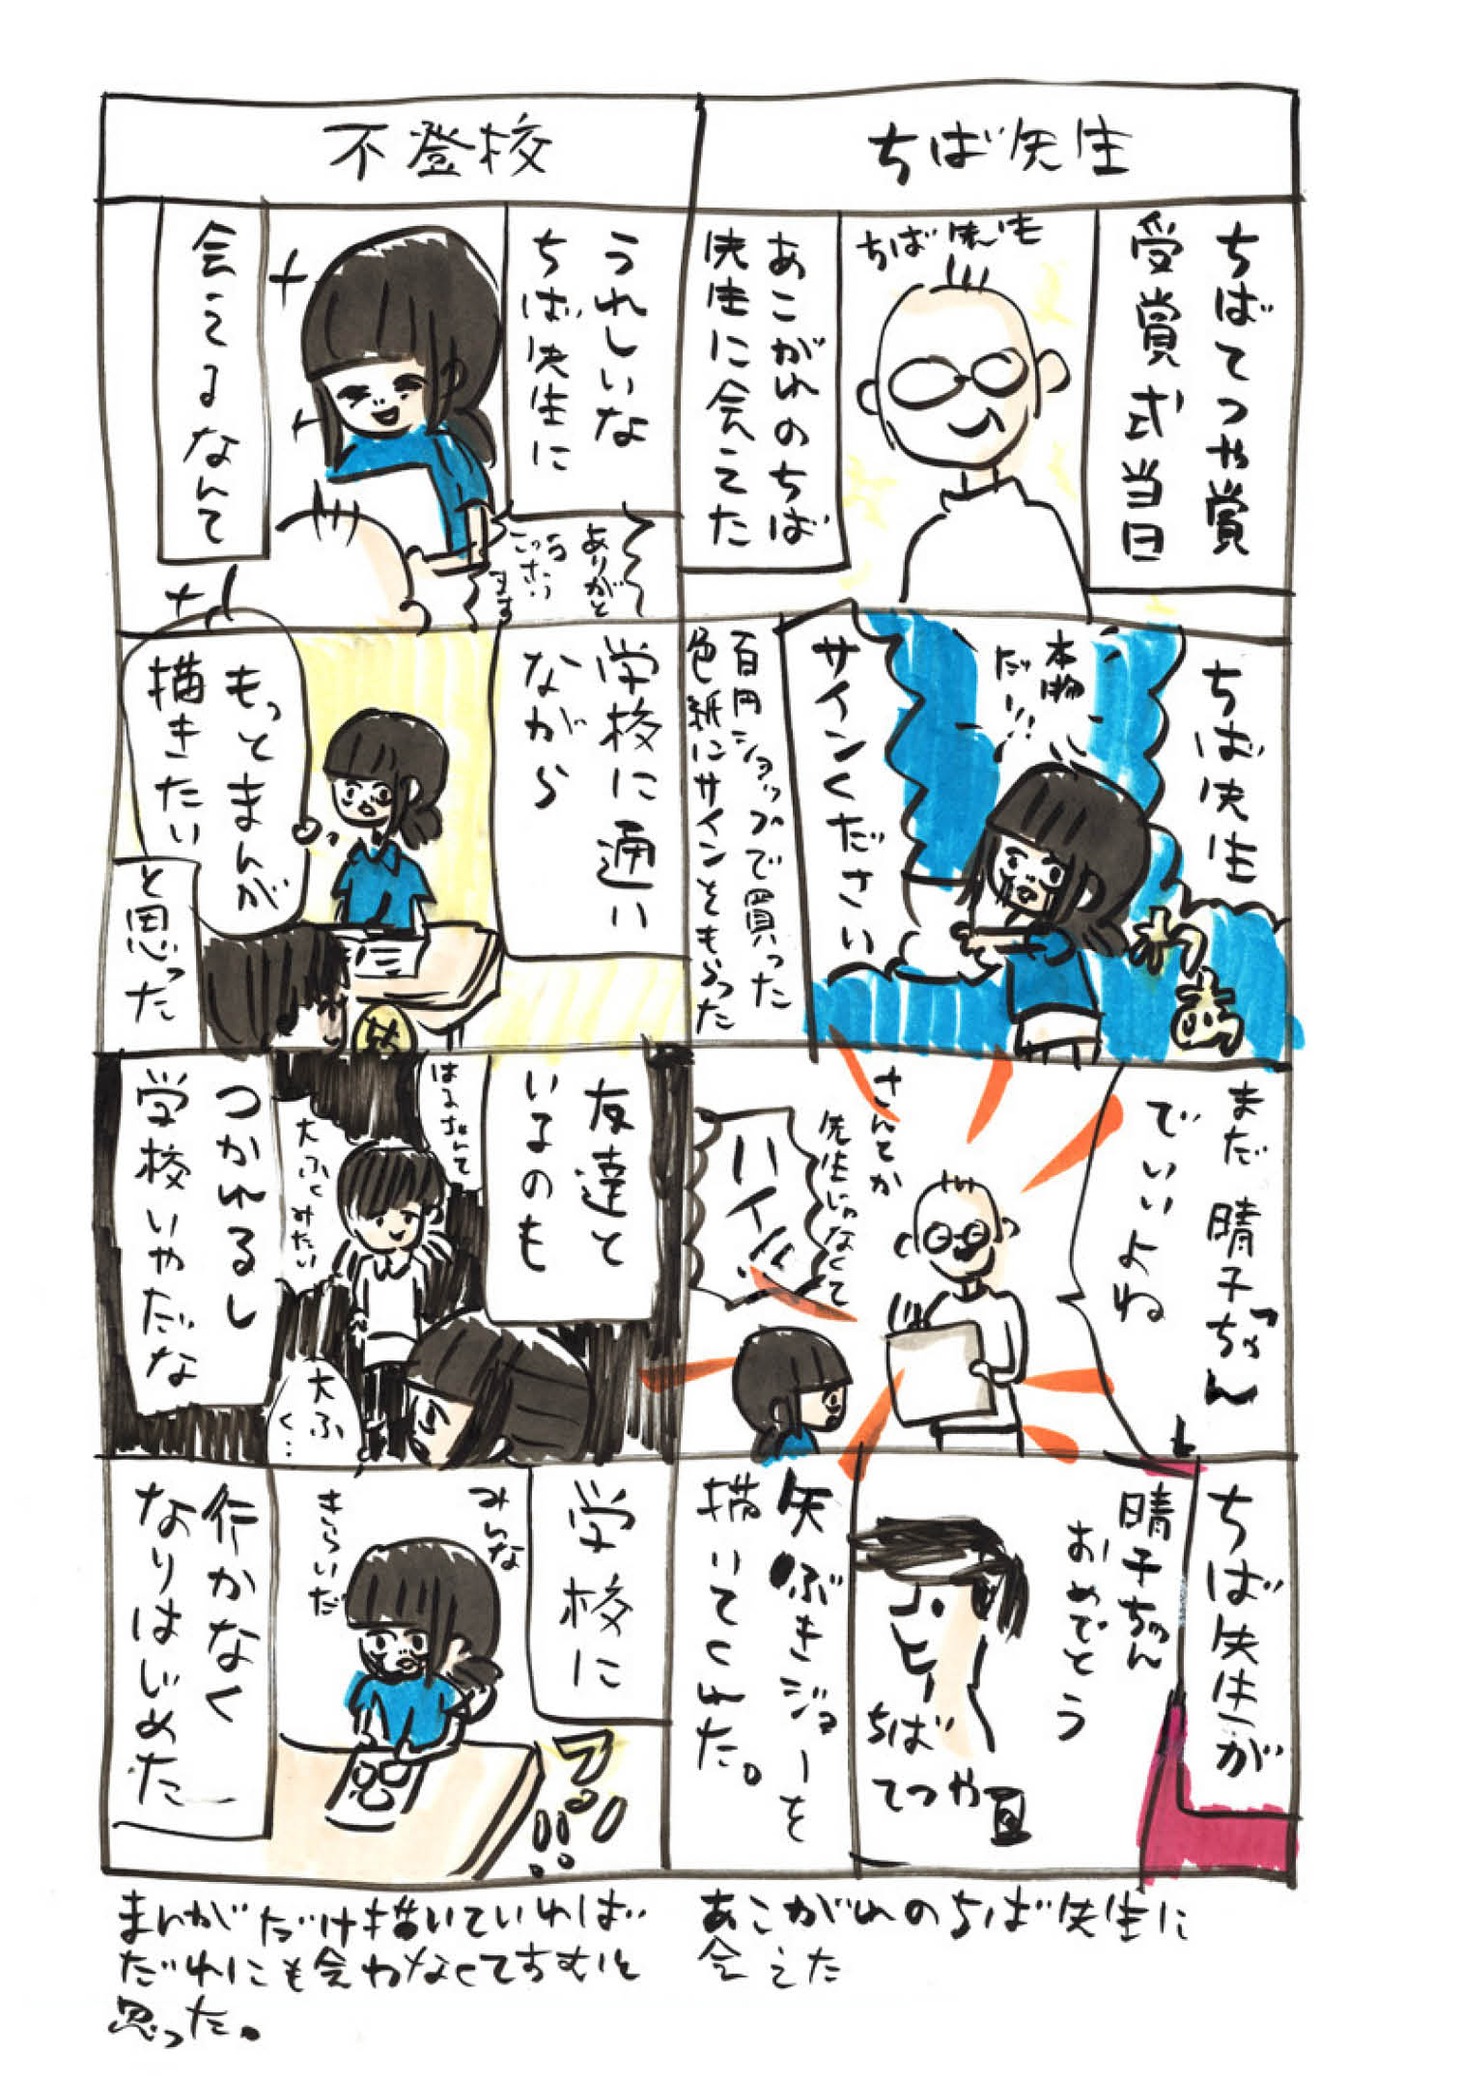 ちば先生
ちばてつや賞
受賞式当日
ちば先生
あこがれのちば
先生に会えた
ちば先生
本物
だー!!
サインください
百円ショップで買った
色紙にサインをもらった
まだ晴子ちゃん
でいいよね
さんとか
先生じゃなくて
ハイ!!
ちば先生が
晴子ちゃん
おめでとう
ちば
てつや
矢ぶきジョーを
描いてくれた。
あこがれのちば先生に
会えた
不登校
うれしいな
ちば先生に
ありがと
うご
ざい
ます
会えるなんて
学校に通い
ながら
もっとまんが
描きたい
と思った
友達と
いるのも
大ふくみたい
大ふ
く…
つかれるし
学校いやだな
学校に
みんな
きらいだ
行かなく
なりはじめた
まんがだけ描いていれば
だれにも会わなくてすむと
思った。